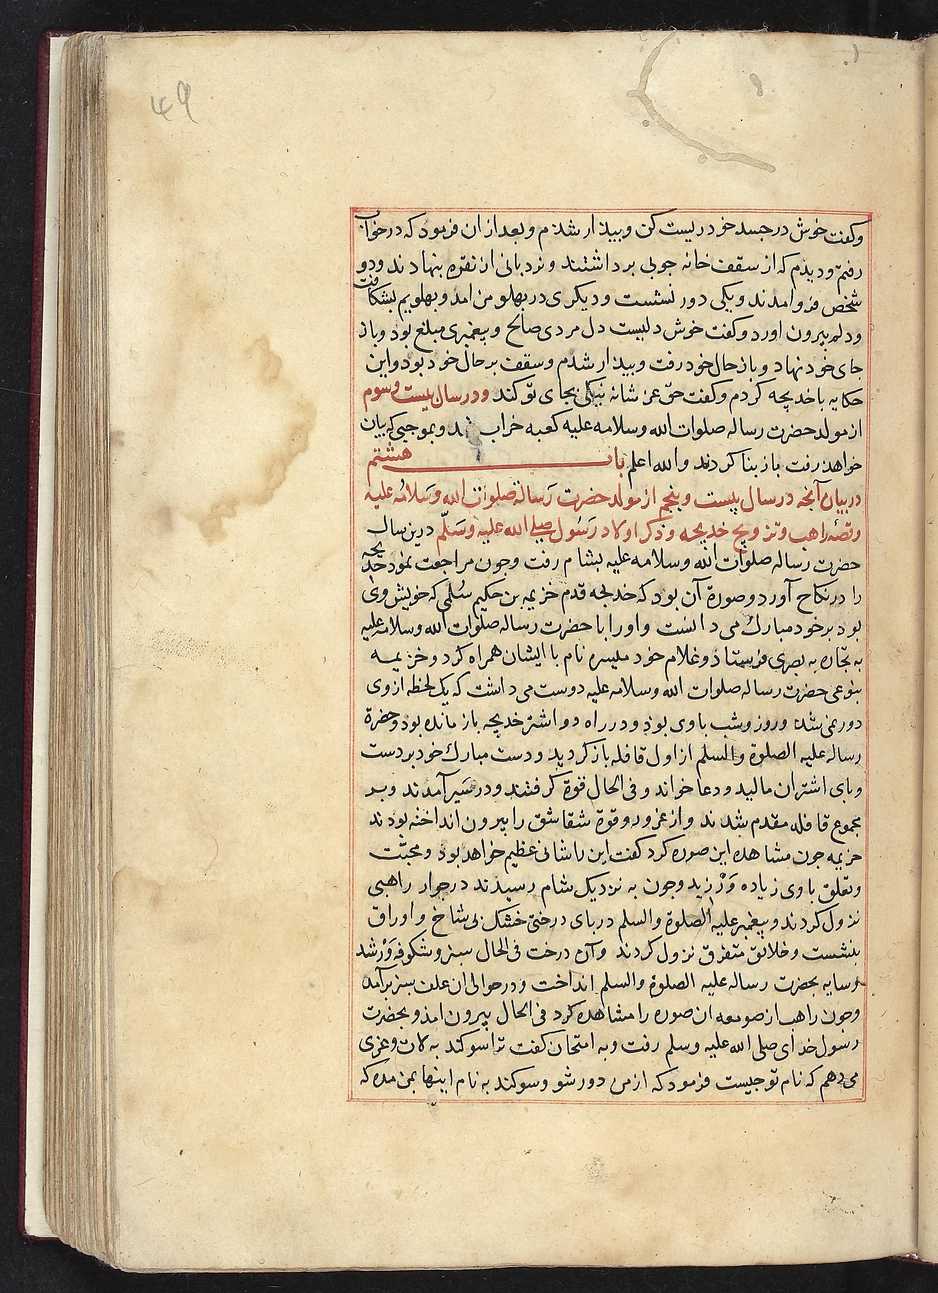 49
و کفت خوش در جسد خود در یست کن و بیذار شذم و بعد ازان فرمود که در خواب
رفتم و دیذم که از سقف خانه جوبی برداشتند و نردبانی از نقره بنهادند و دو
شخص فرو امدند و یکی دور نشست و دیکری در بهلو من امد و بهلویم بشکافت
و دلم بیرون اورد و کفت خوش دلیست دل مردی صالح و بیغمبری مبلغ بود و باز
جای خود نهاد و باز حال خود رفت و بیدار شدم و سقف بر حال خود بود و این
حکایه با خدیجه کردم و کفت حق عز شانه نیکی بجای تو کند و در سال بیست و سوم
از مولد حضرت رساله صلوات الله و سلامه علیه کعبه خراب شد و بموجبی که بیان
خواهد رفت باز بنا کردند والله اعلم باب هشتم
در بیان آنجه در سال بیست و بنجم از مولد حضرت رسالة صلوات الله وسلامه علیه
و قصه راهب و تزویج خدیجه و ذکر اولاد رسول صلی الله علیه وسلّم درین سال
حضرت رساله صلوات الله وسلامه علیه بشام رفت و جون مراجعت نمود خدیجه
را در نکاح آورد و صورة آن بود که خدیجه قدم خزیمه بن حکیم سلمی که خویش وی
بود بر خود مبارک می دانست و او را با حضرت رساله صلوات الله وسلامه علیه
به تجاره به بصری فرستاد و غلام خود میسره نام با ایشان همراه کرد و خزیمه
بنوعی حضرت رساله صلوات الله وسلامه علیه دوست می داشت که یک لحظه از وی
دور نمی شد و روز و شب با وی بود و در راه دو اشتر خدیجه باز مانده بود و حضرة
رساله علیه الصلوة والسلم از اول قافله باز کردید و دست مبارک خود بر دست
و بای اشتران مالید و دعا خواند و فی الحال قوة کرفتند و در سیر آمدند و بر
مجموع قافله مقدم شدند و از غرور و قوة شقاشق را بیرون انداخته بودند
خزیمه جون مشاهده این صوره کرد کفت این را شانی عظیم خواهد بود و محبّت
و تعلق با وی زیاده ورزید و جون به نزدیک شام رسیدند در جوار راهبی
نزول کردند و بیغمبر علیه الصلوة والسلم در بای درختی خشک بی شاخ و اوراق
بنشست و خلائق متفرق نزول کردند و آن درخت فی الحال سبز و شکوفه ور شد
و سایه بحضرت رساله علیه الصلوة والسلم انداخت و در حوالی ان علف سبز برآمد
و جون راهب از صومعه ان صوره را مشاهده کرد فی الحال بیرون امد و بحضرت
رسول خدای صلی الله علیه وسلم رفت و به امتحان کفت ترا سوکند به لات و عزی
می دهم که نام تو جیست فرمود که از من دور شو و سوکند به نام اینها بمن مده که